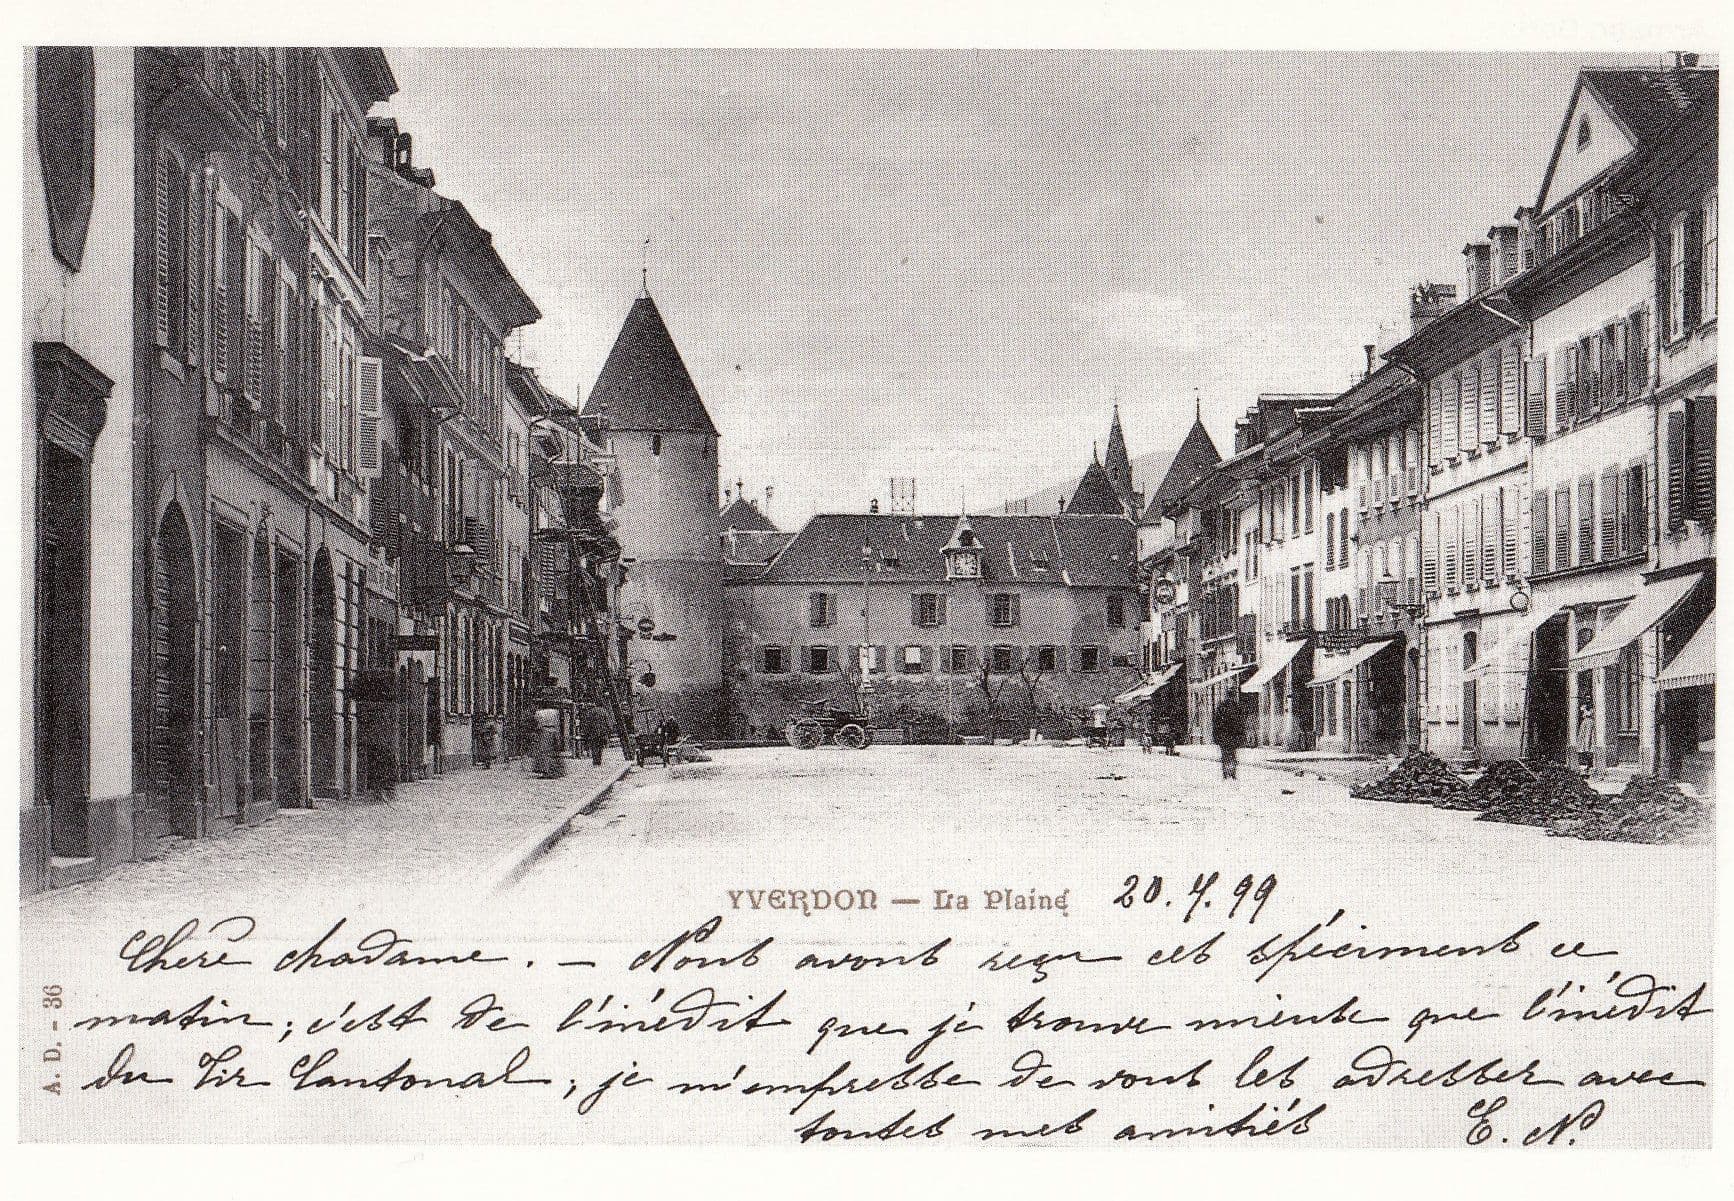 YVERDON — La Plaine
20.4.99
Chère Madame. — Nous avons reçu ces spéciments ce
matin; c'est de l'inédit que je trouve mieux que l'inédit
du Tir Cantonal; je m'empresse de vous les adresser avec
toutes mes amitiés E. N.
A. D. - 36